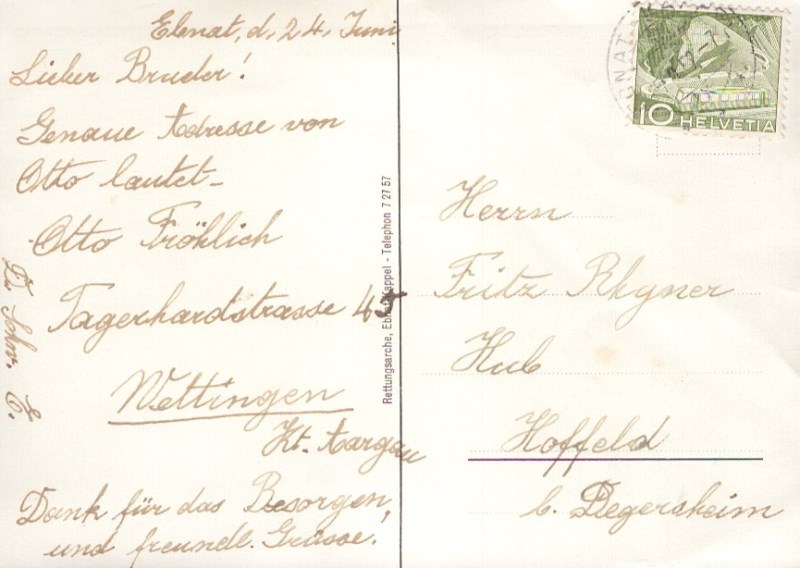 Ebnat, d, 24, Juni
Lieber Bruder!
Genaue Adresse von
Otto lautet-
Otto Fröhlich
Tagerhardstrasse 45
Wettingen
Kt. Aargau
Dank für das Besorgen,
und freundl. Grüsse!
Rettungsarche, Ebnat-Kappel - Telephon 7 27 57
10 HELVETIA
Herrn
Fritz Rhyner
Hub
Hoffeld
b. Degersheim